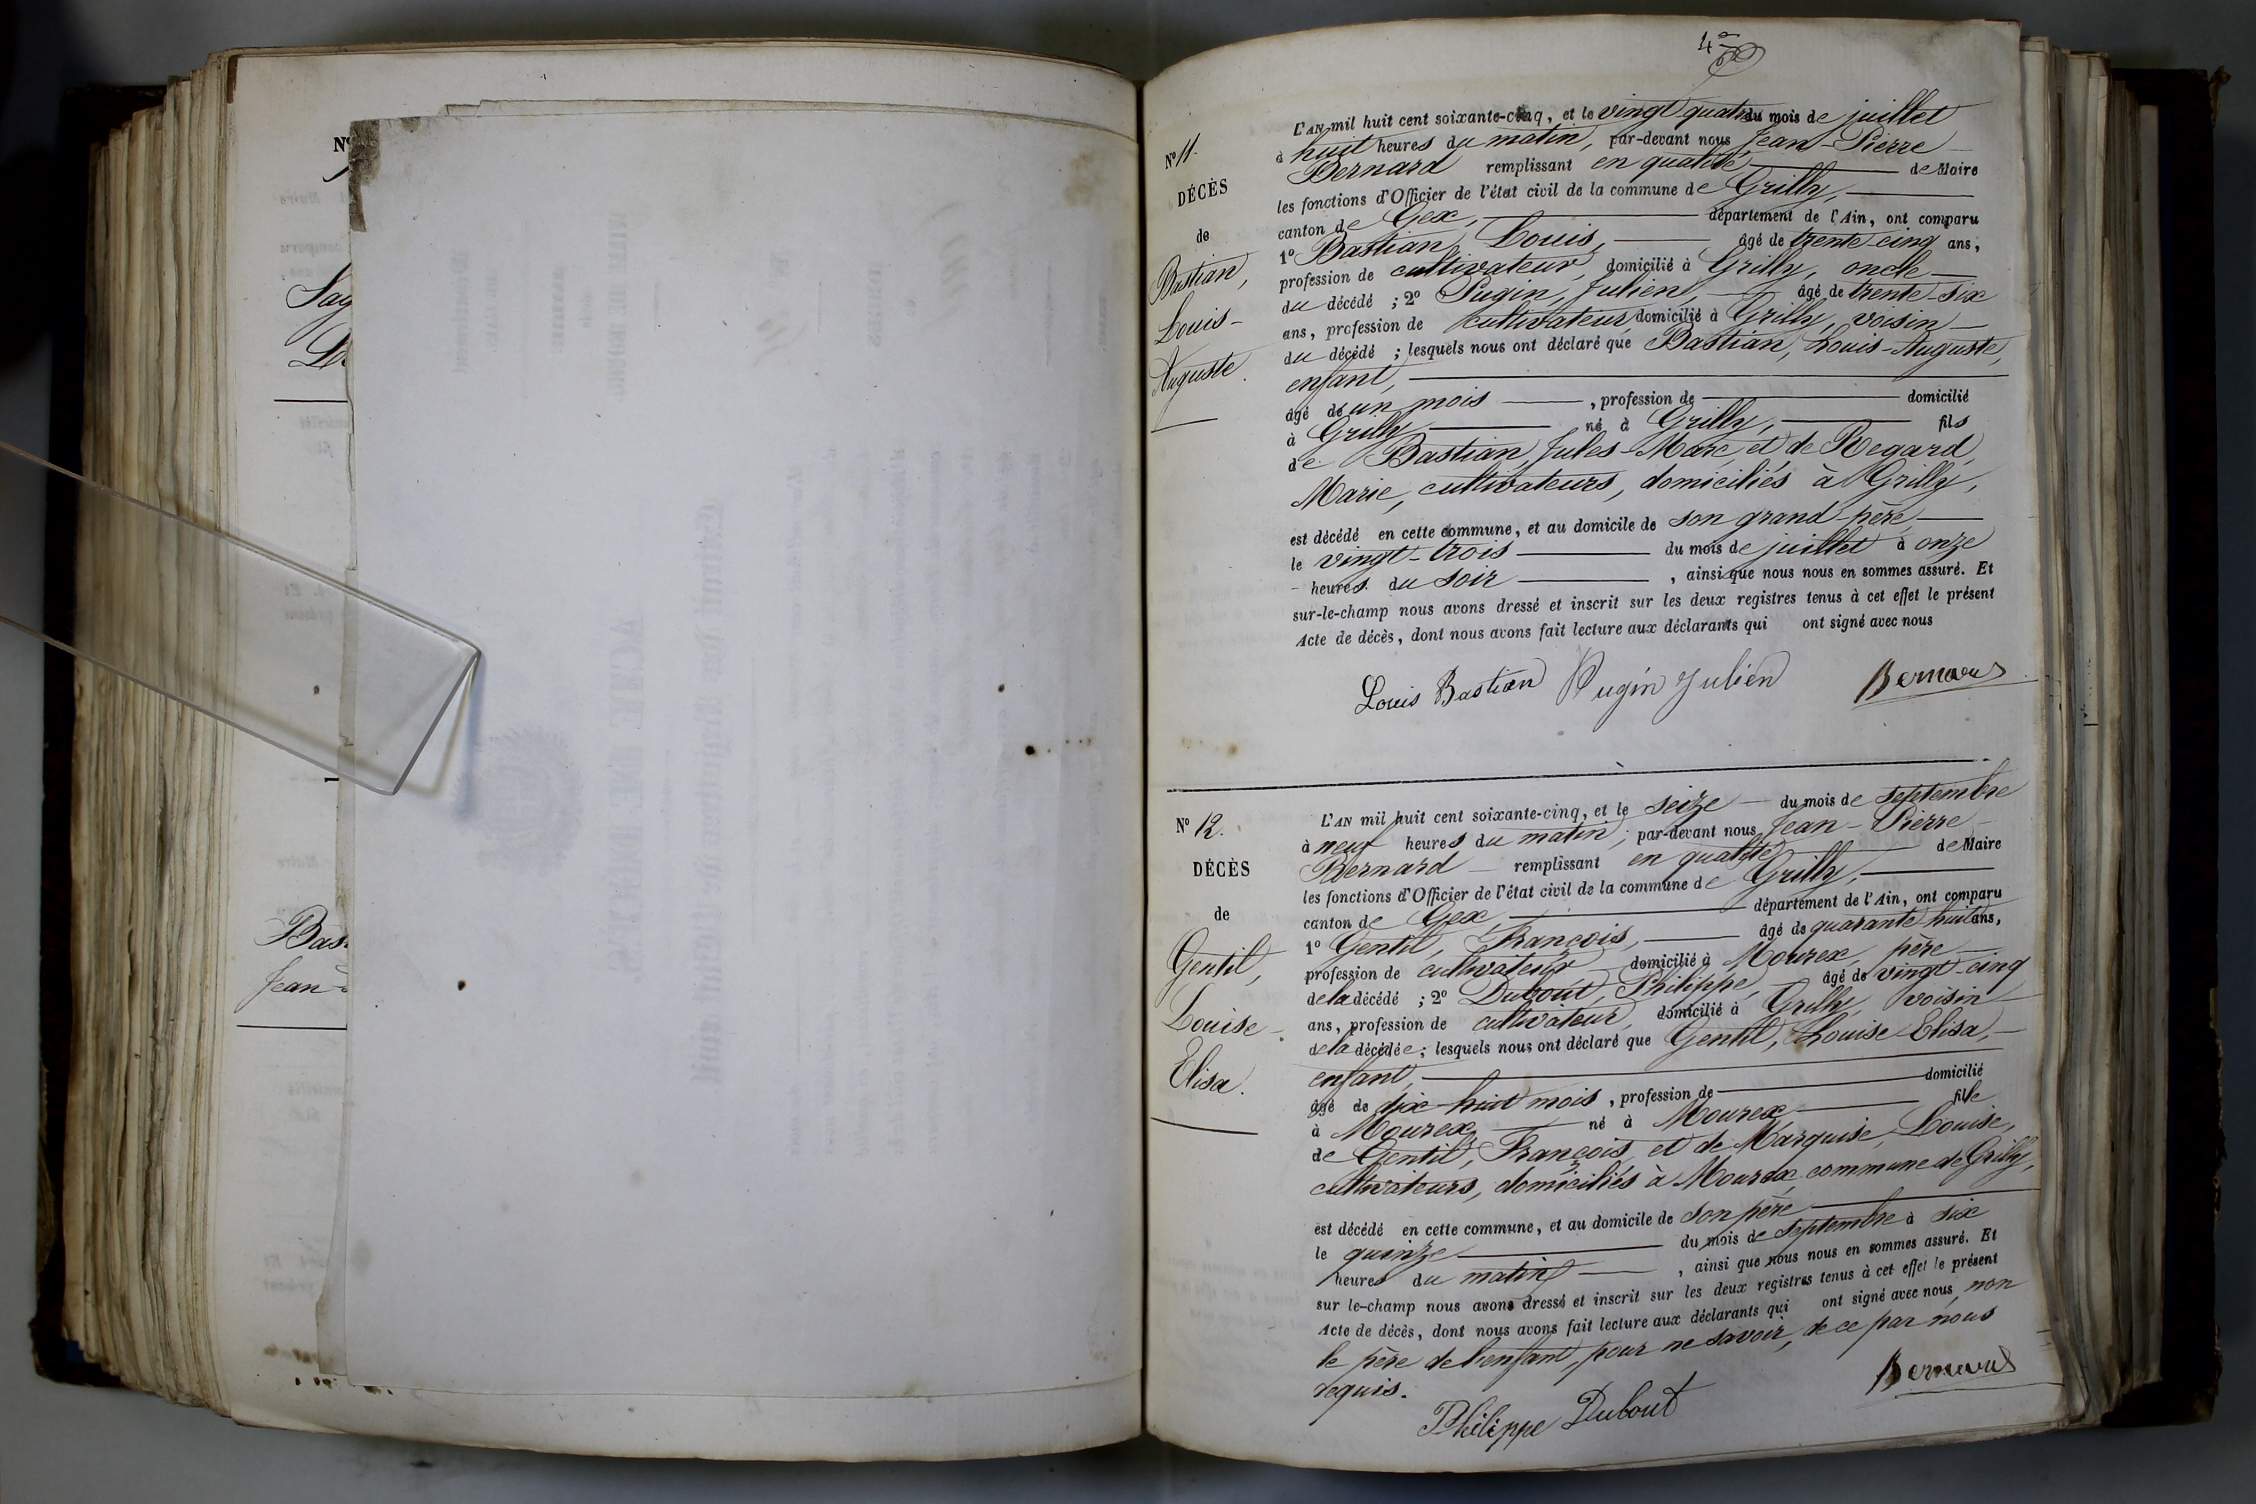 Nº
Say
Bas
Jean-
4e
Nº 11.
DÉCÈS
de
Bastian,
Louis-
Auguste.
L'AN mil huit cent soixante-cinq, et le vingt quatre du mois de juillet
à huit heures du matin, par-devant nous Jean-Pierre
Bernard remplissant en qualité de Maire
les fonctions d'Officier de l'état civil de la commune de Grilly,
canton de Gex, département de l'Ain, ont comparu
1º Bastian, Louis, âgé de trente-cinq ans,
profession de cultivateur, domicilié à Grilly, oncle
du décédé ; 2º Pugin, Julien, âgé de trente-six
ans, profession de cultivateur, domicilié à Grilly, voisin
du décédé ; lesquels nous ont déclaré que Bastian, Louis-Auguste,
enfant,
âgé de un mois , profession de domicilié
à Grilly né à Grilly, fils
de Bastian, Jules-Marc, et de Regard,
Marie, cultivateurs, domiciliés à Grilly,
est décédé en cette commune, et au domicile de son grand-père
le vingt-trois du mois de juillet à onze
heures du soir , ainsi que nous nous en sommes assuré. Et
sur-le-champ nous avons dressé et inscrit sur les deux registres tenus à cet effet le présent
Acte de décès, dont nous avons fait lecture aux déclarants qui ont signé avec nous
Louis Bastian Pugin Julien Bernard
Nº 12.
DÉCÈS
de
Gentil,
Louise-
Elisa.
L'AN mil huit cent soixante-cinq, et le seize du mois de septembre
à neuf heures du matin, par-devant nous Jean-Pierre
Bernard remplissant en qualité de Maire
les fonctions d'Officier de l'état civil de la commune de Grilly,
canton de Gex, département de l'Ain, ont comparu
1º Gentil, François, âgé de quarante huit ans,
profession de cultivateur domicilié à Mourex, père
de la décédé ; 2º Dubout, Philippe, âgé de vingt-cinq
ans, profession de cultivateur, domicilié à Grilly, voisin
de la décédée ; lesquels nous ont déclaré que Gentil, Louise-Elisa,
enfant,
âgé de dix-huit mois , profession de domicilié
à Mourex né à Mourex fille
de Gentil, François et de Marquise, Louise,
cultivateurs, domiciliés à Mourex, commune de Grilly,
est décédé en cette commune, et au domicile de son père
le quinze du mois de septembre à six
heures du matin , ainsi que nous nous en sommes assuré. Et
sur le-champ nous avons dressé et inscrit sur les deux registres tenus à cet effet le présent
Acte de décès, dont nous avons fait lecture aux déclarants qui ont signé avec nous, non
le père de l'enfant, pour ne savoir, de ce par nous
requis.
Philippe Dubout Bernard